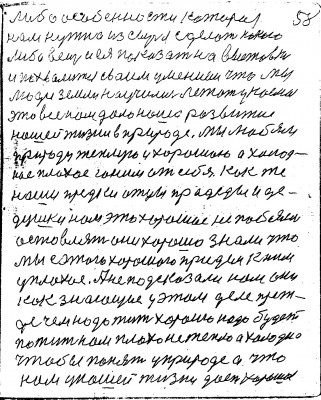 либо особенности которая 58
нам нужно из сырья сделать какою
либо вещь и ея показать на выставки
и похвалится своим умением что мы
люди земли научились летать у космос
это всё нам дало наше развитие
нашей жизни в природе. мы любям
природу теплую у хорошою а холод-
ное плохое гоним от себя. Как же
наши предки отцы прадеды и де-
душки нам это хорошее не побоялись
оставлять они хорошо знали что
мы с этого хорошого придем к ним
у плохое. А не подсказали нам они
как знающие у этом деле преж-
де чем надо жить хорошо надо будет
пожить нам плохо не тепло а холодно
чтобы понять у природе а что
нам у нашей жизни дает хорошее